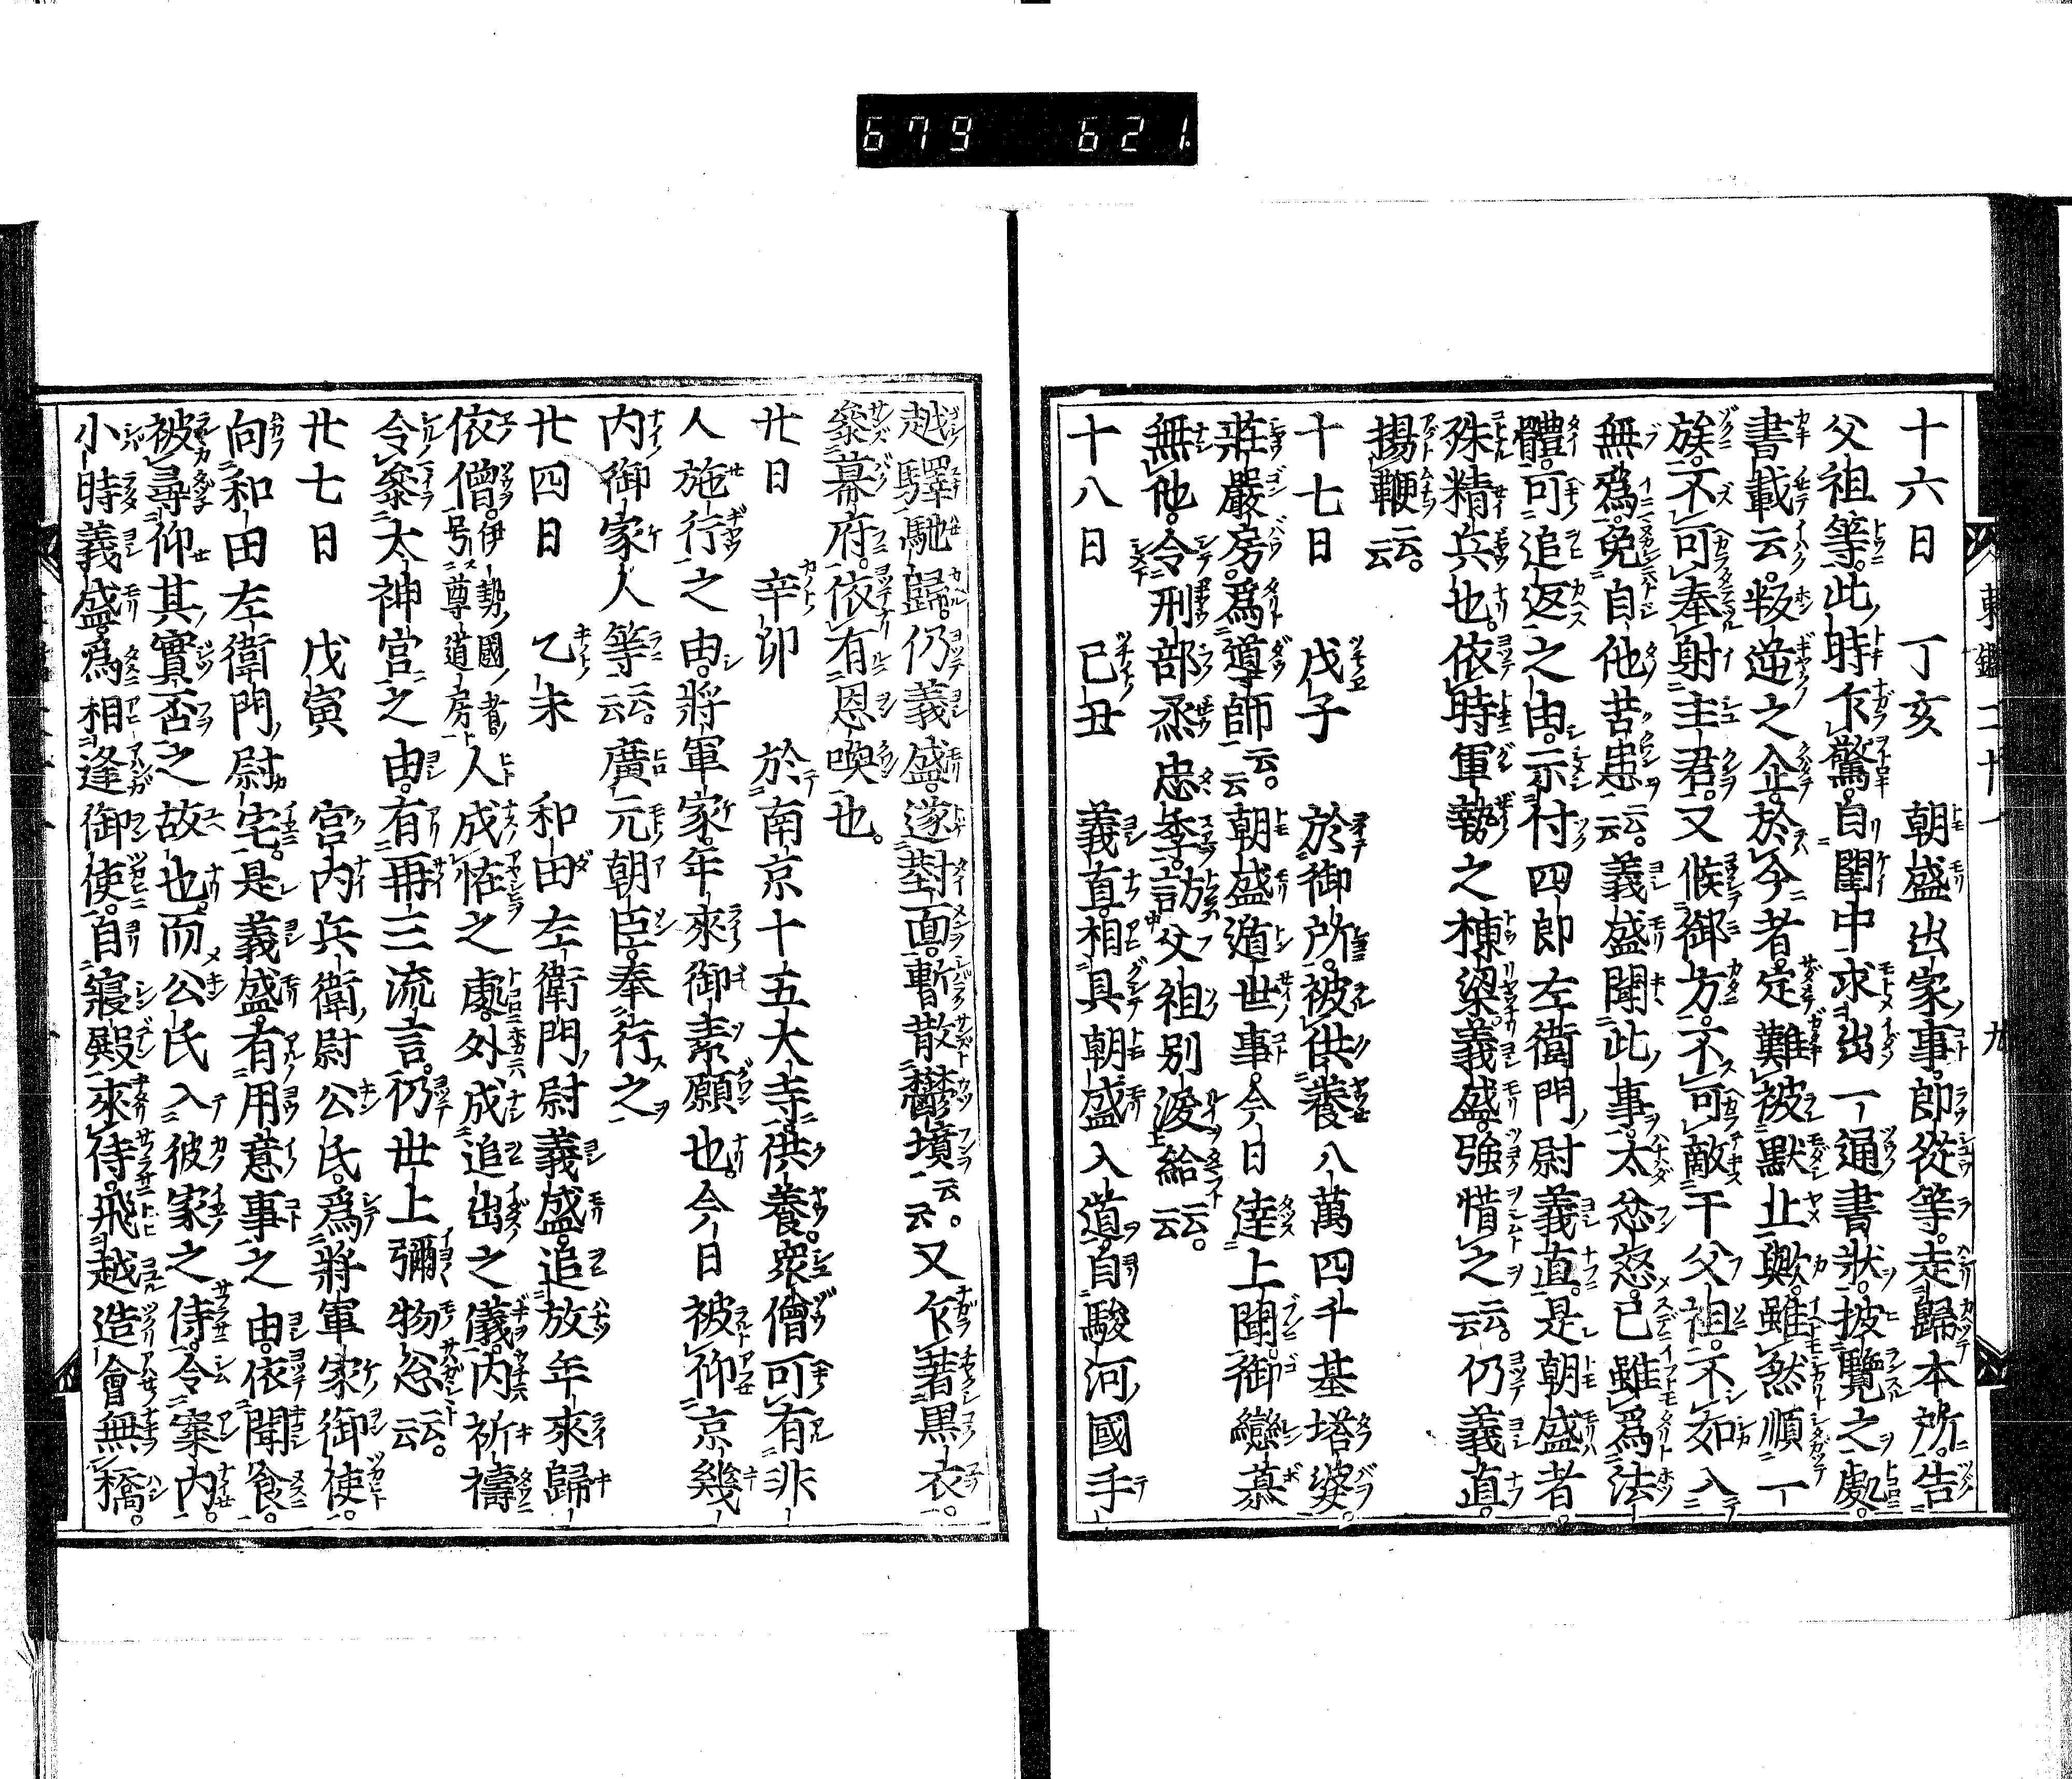 679 621.
東鑑二十一 九
十六日 丁亥 朝盛出家事。即從等。走歸本所。告
父祖等。此時乍驚。自閨中求出一通書狀。披覽之處。
書載云。叛逆之企。於今者。定難被默止歟。雖然順一
族。不可奉射主君。又候御方。不可敵于父祖。不如入
無爲。免自他苦患云云。義盛聞此事。太忿怒。已雖爲法
體。可追返之由。示付四郎左衛門尉義直。是朝盛者。
殊精兵也。依時軍勢之棟梁。義盛。強惜之云云。仍義直。
揚鞭云云。
十七日 戊子 於御所。被供養八萬四千基塔婆。
莊嚴房。爲導師云云。朝盛遁世事。今日達上聞。御戀慕
無他。令刑部丞忠季。訪父祖別淚給云云。
十八日 己丑 義直。相具朝盛入道。自駿河國手
越驛馳歸。仍義盛。遂對面。暫散鬱墳云云。又乍著黑衣。
參幕府。依有恩喚也。
廿日 辛卯 於南京十五大寺。供養。衆僧可有非
人施行之由。將軍家。年來御素願也。今日被仰京幾
内御家人等云云。廣元朝臣。奉行之
廿四日 乙未 和田左衛門尉義盛。追放年來歸
依僧。伊勢國者号尊道房人成恠之處。外成追出之儀。内祈禱
令參太神宮之由。有再三流言。仍世上彌物忩云云。
廿七日 戊寅 宮内兵衛尉公氏。爲將軍家御使。
向和田左衛門尉宅。是義盛。有用意事之由。依聞食。
被尋仰其實否之故也。而公氏入彼家之侍。令案内。
小時義盛。爲相逢御使。自寢殿來侍。飛越造會無橋。